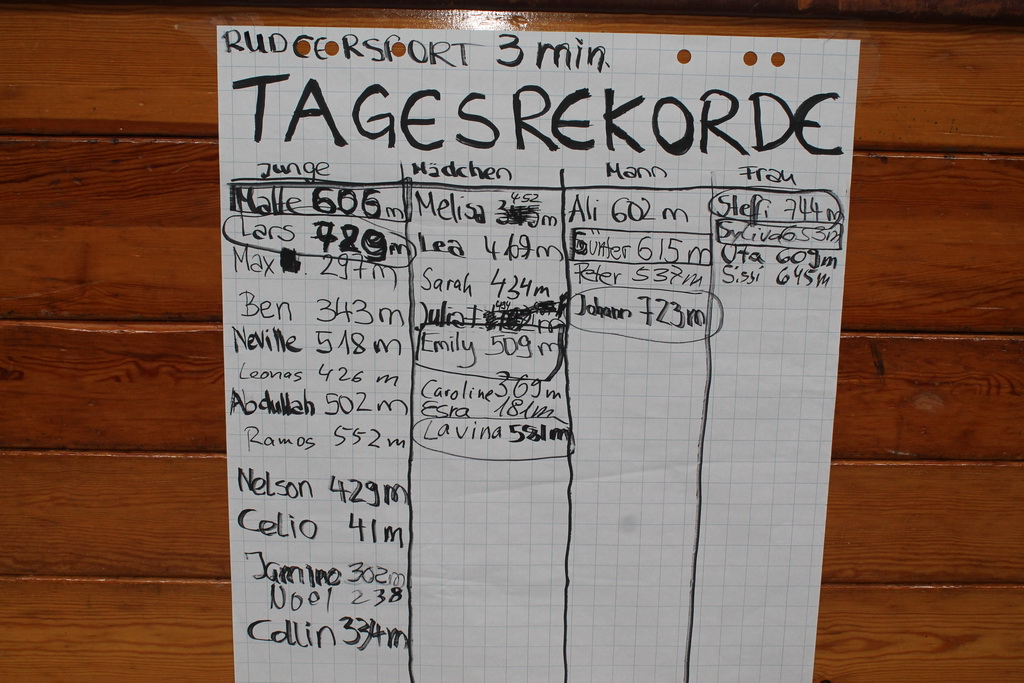 RUDEERSPORT 3 min.
TAGESREKORDE
Junge
Malte 606 m
Lars 729 m
Max 297 m
Ben 343 m
Neville 518 m
Leonas 426 m
Abdullah 502 m
Ramos 552 m
Nelson 429 m
Celio 41 m
Jamino 302 m
Noel 238
Collin 334 m
Mädchen
Melisa 452 m
Lea 469 m
Sarah 434 m
Julia m
Emily 509 m
Caroline 369 m
Esra 181 m
Lavina 581 m
Mann
Ali 602 m
Günter 615 m
Peter 537 m
Johann 723 m
Frau
Steffi 744 m
653 m
Uta 609 m
Sissi 645 m